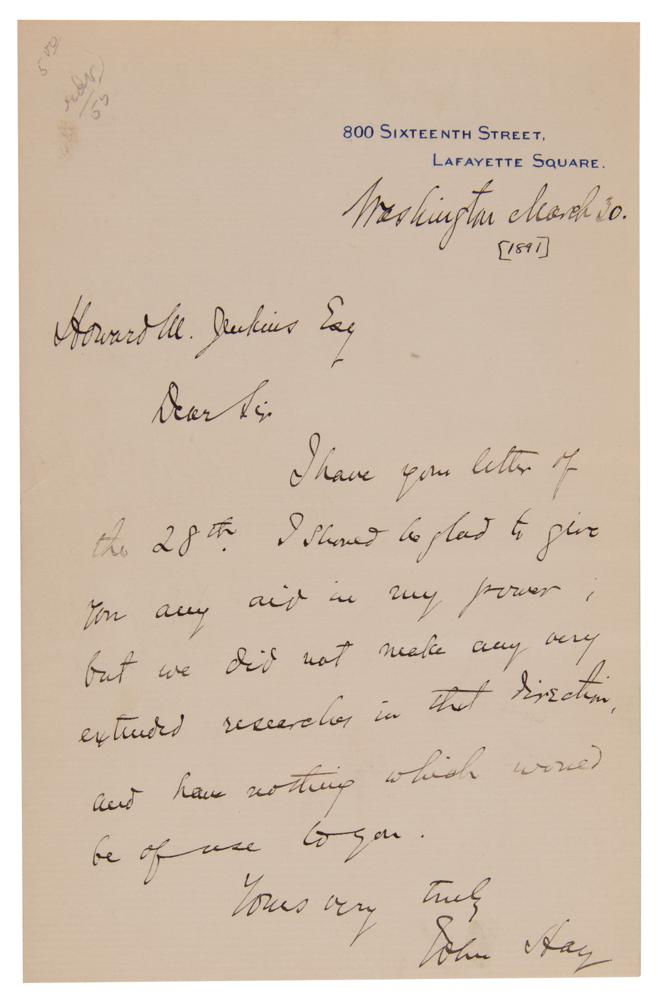 800 SIXTEENTH STREET,
LAFAYETTE SQUARE.
Washington March 30.
[1891]
Howard M. Jenkins Esq
Dear Sir
I have your letter of
the 28th. I should be glad to give
you any aid in my power ;
but we did not make any very
extended researches in that direction,
and have nothing which would
be of use to you.
Yours very truly
John Hay